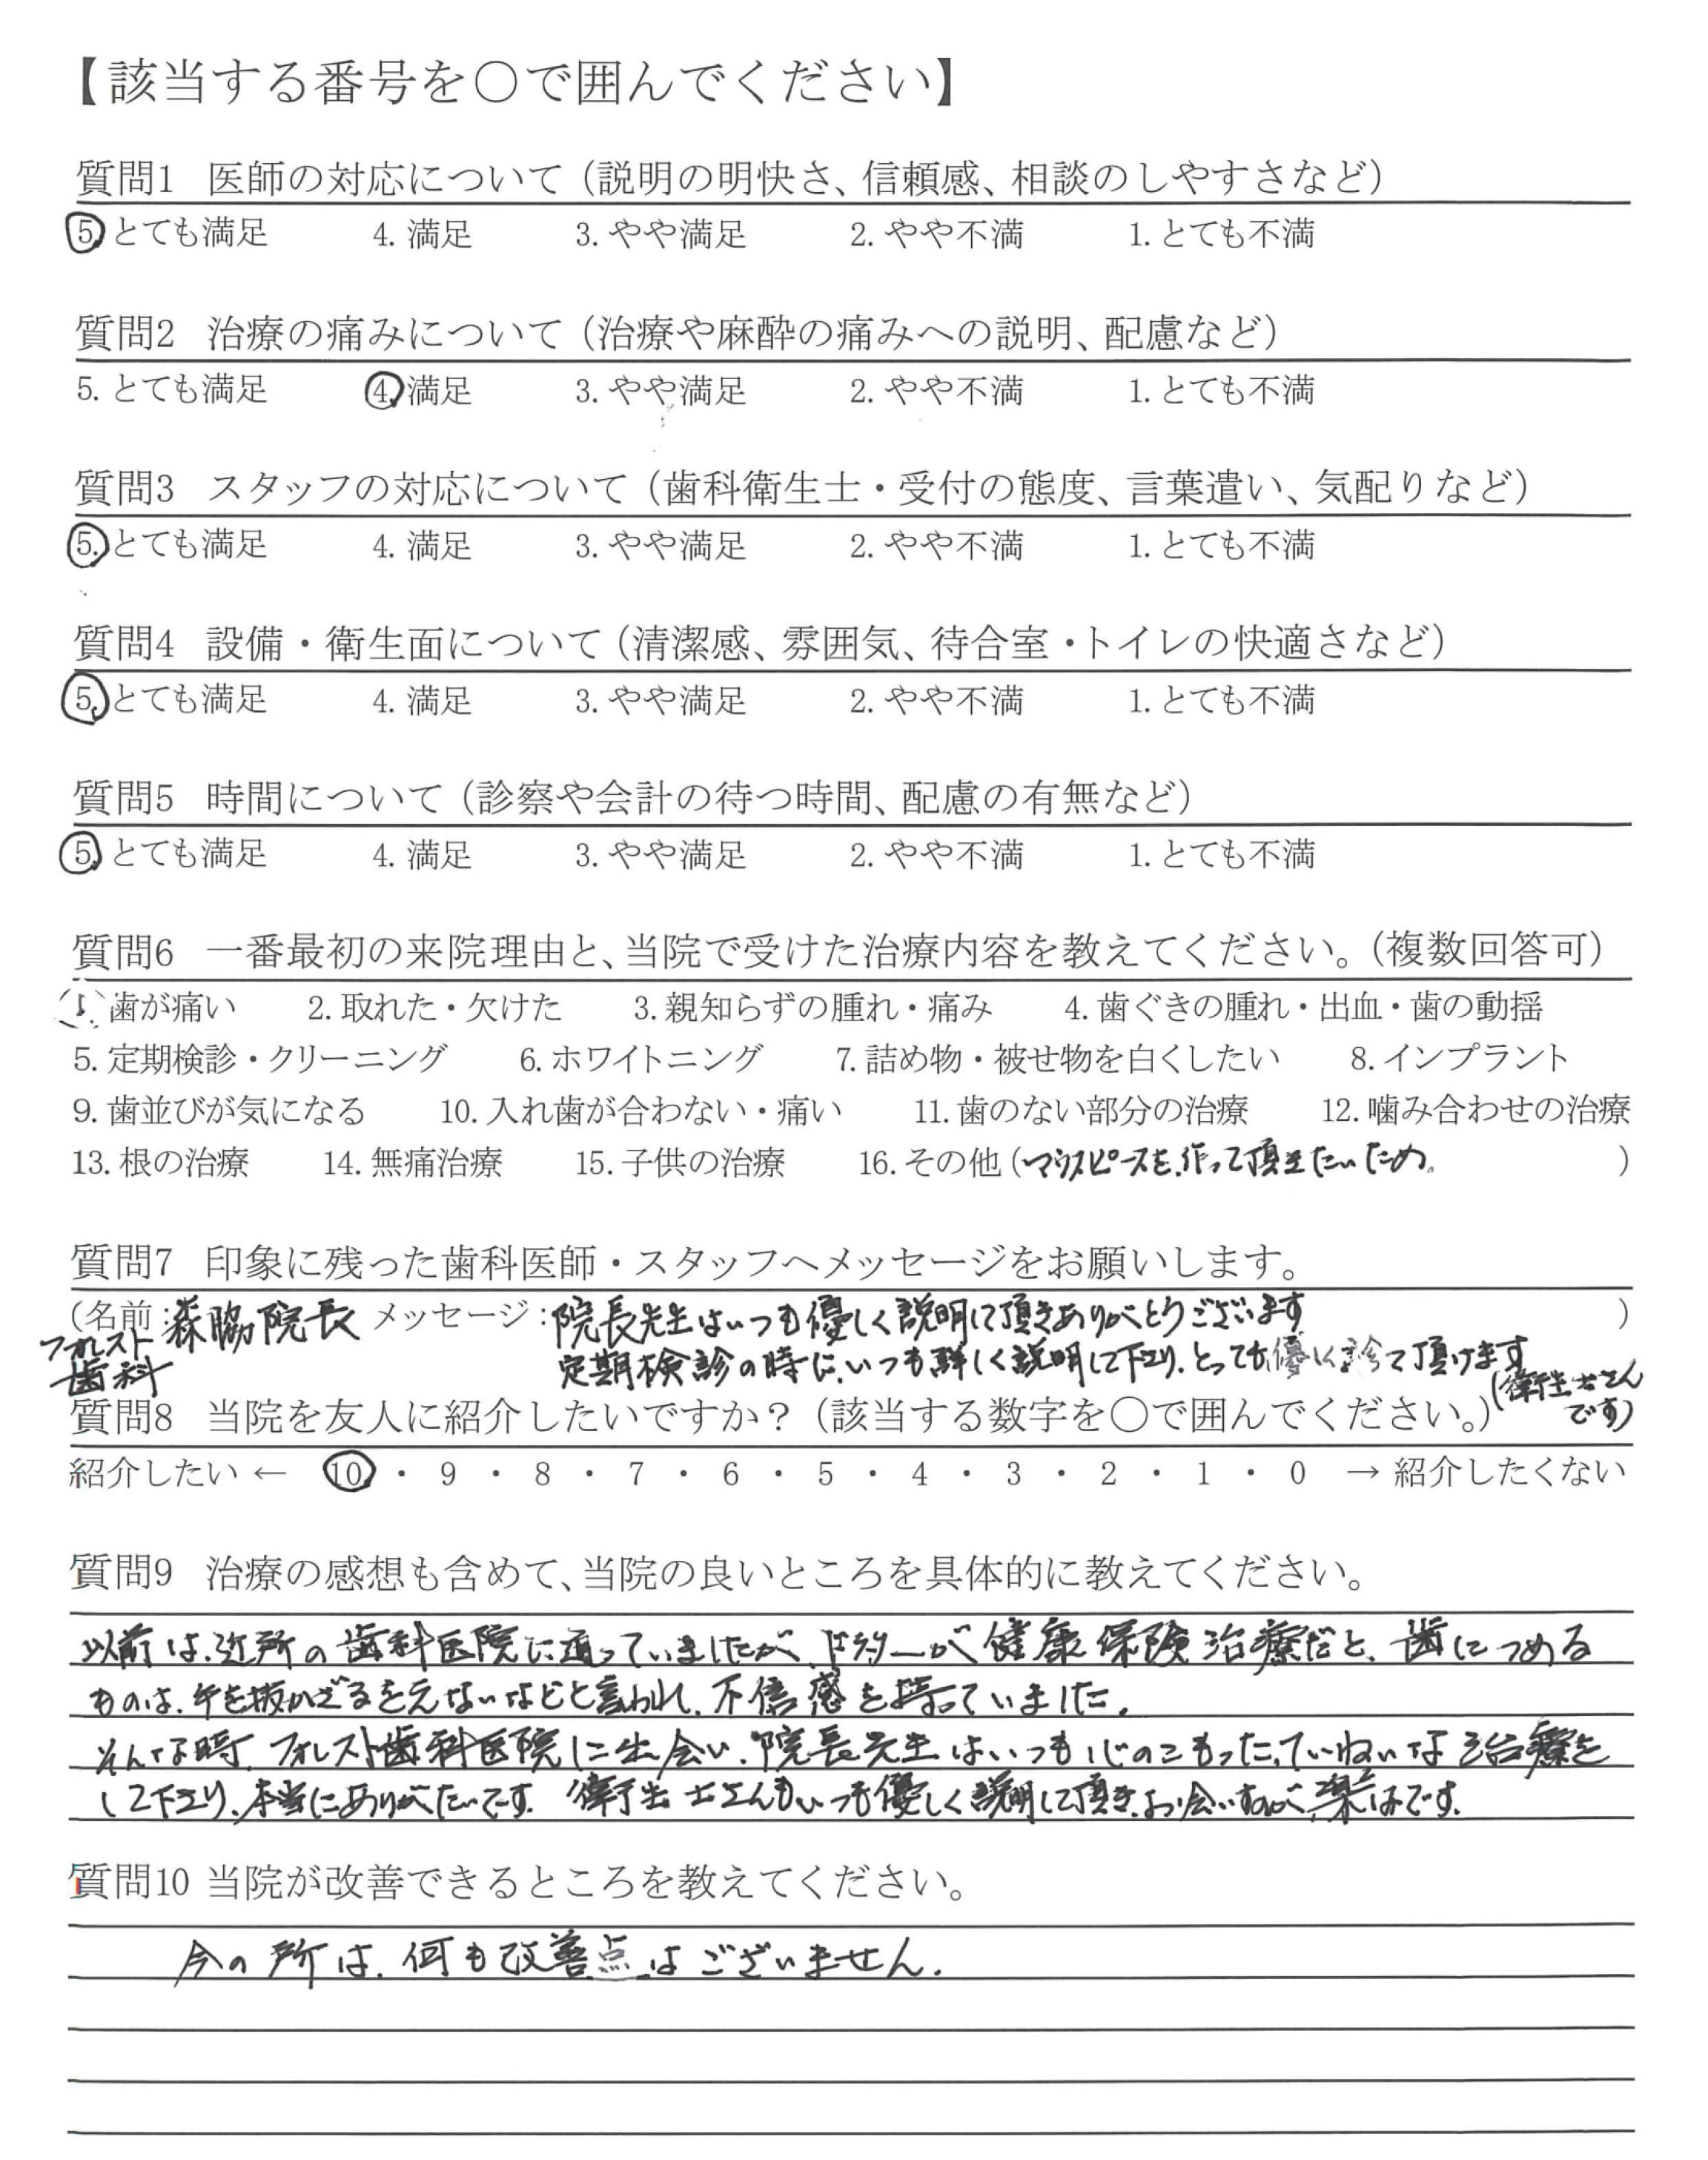 【該当する番号を〇で囲んでください】
質問1 医師の対応について（説明の明快さ、信頼感、相談のしやすさなど）
5. とても満足 4. 満足 3. やや満足 2. やや不満 1. とても不満
質問2 治療の痛みについて（治療や麻酔の痛みへの説明、配慮など）
5. とても満足 4. 満足 3. やや満足 2. やや不満 1. とても不満
質問3 スタッフの対応について（歯科衛生士・受付の態度、言葉遣い、気配りなど）
5. とても満足 4. 満足 3. やや満足 2. やや不満 1. とても不満
質問4 設備・衛生面について（清潔感、雰囲気、待合室・トイレの快適さなど）
5. とても満足 4. 満足 3. やや満足 2. やや不満 1. とても不満
質問5 時間について（診察や会計の待つ時間、配慮の有無など）
5. とても満足 4. 満足 3. やや満足 2. やや不満 1. とても不満
質問6 一番最初の来院理由と、当院で受けた治療内容を教えてください。（複数回答可）
1. 歯が痛い 2. 取れた・欠けた 3. 親知らずの腫れ・痛み 4. 歯ぐきの腫れ・出血・歯の動揺
5. 定期検診・クリーニング 6. ホワイトニング 7. 詰め物・被せ物を白くしたい 8. インプラント
9. 歯並びが気になる 10. 入れ歯が合わない・痛い 11. 歯のない部分の治療 12. 噛み合わせの治療
13. 根の治療 14. 無痛治療 15. 子供の治療 16. その他（マウスピースを、作って頂きたいため。）
質問7 印象に残った歯科医師・スタッフへメッセージをお願いします。
（名前：森脇院長 メッセージ：院長先生はいつも優しく説明して頂きありがとうございます ）
フォレスト歯科 定期検診の時に、いつも詳しく説明して下さり、とっても優しく診て頂けます
（衛生士さんです）
質問8 当院を友人に紹介したいですか？（該当する数字を〇で囲んでください。）
紹介したい ← 10 ・ 9 ・ 8 ・ 7 ・ 6 ・ 5 ・ 4 ・ 3 ・ 2 ・ 1 ・ 0 → 紹介したくない
質問9 治療の感想も含めて、当院の良いところを具体的に教えてください。
以前は、近所の歯科医院に通っていましたが、ドクターが健康保険治療だと、歯につめる
ものは、手を抜かざるをえないなどと言われ、不信感を持っていました。
そんな時、フォレスト歯科医院に出会い、院長先生はいつも心のこもった、ていねいな治療を
して下さり、本当にありがたいです。衛生士さんもいつも優しく説明して頂き、お会いするのが、楽しみです。
質問10 当院が改善できるところを教えてください。
今の所は、何も改善点はございません。